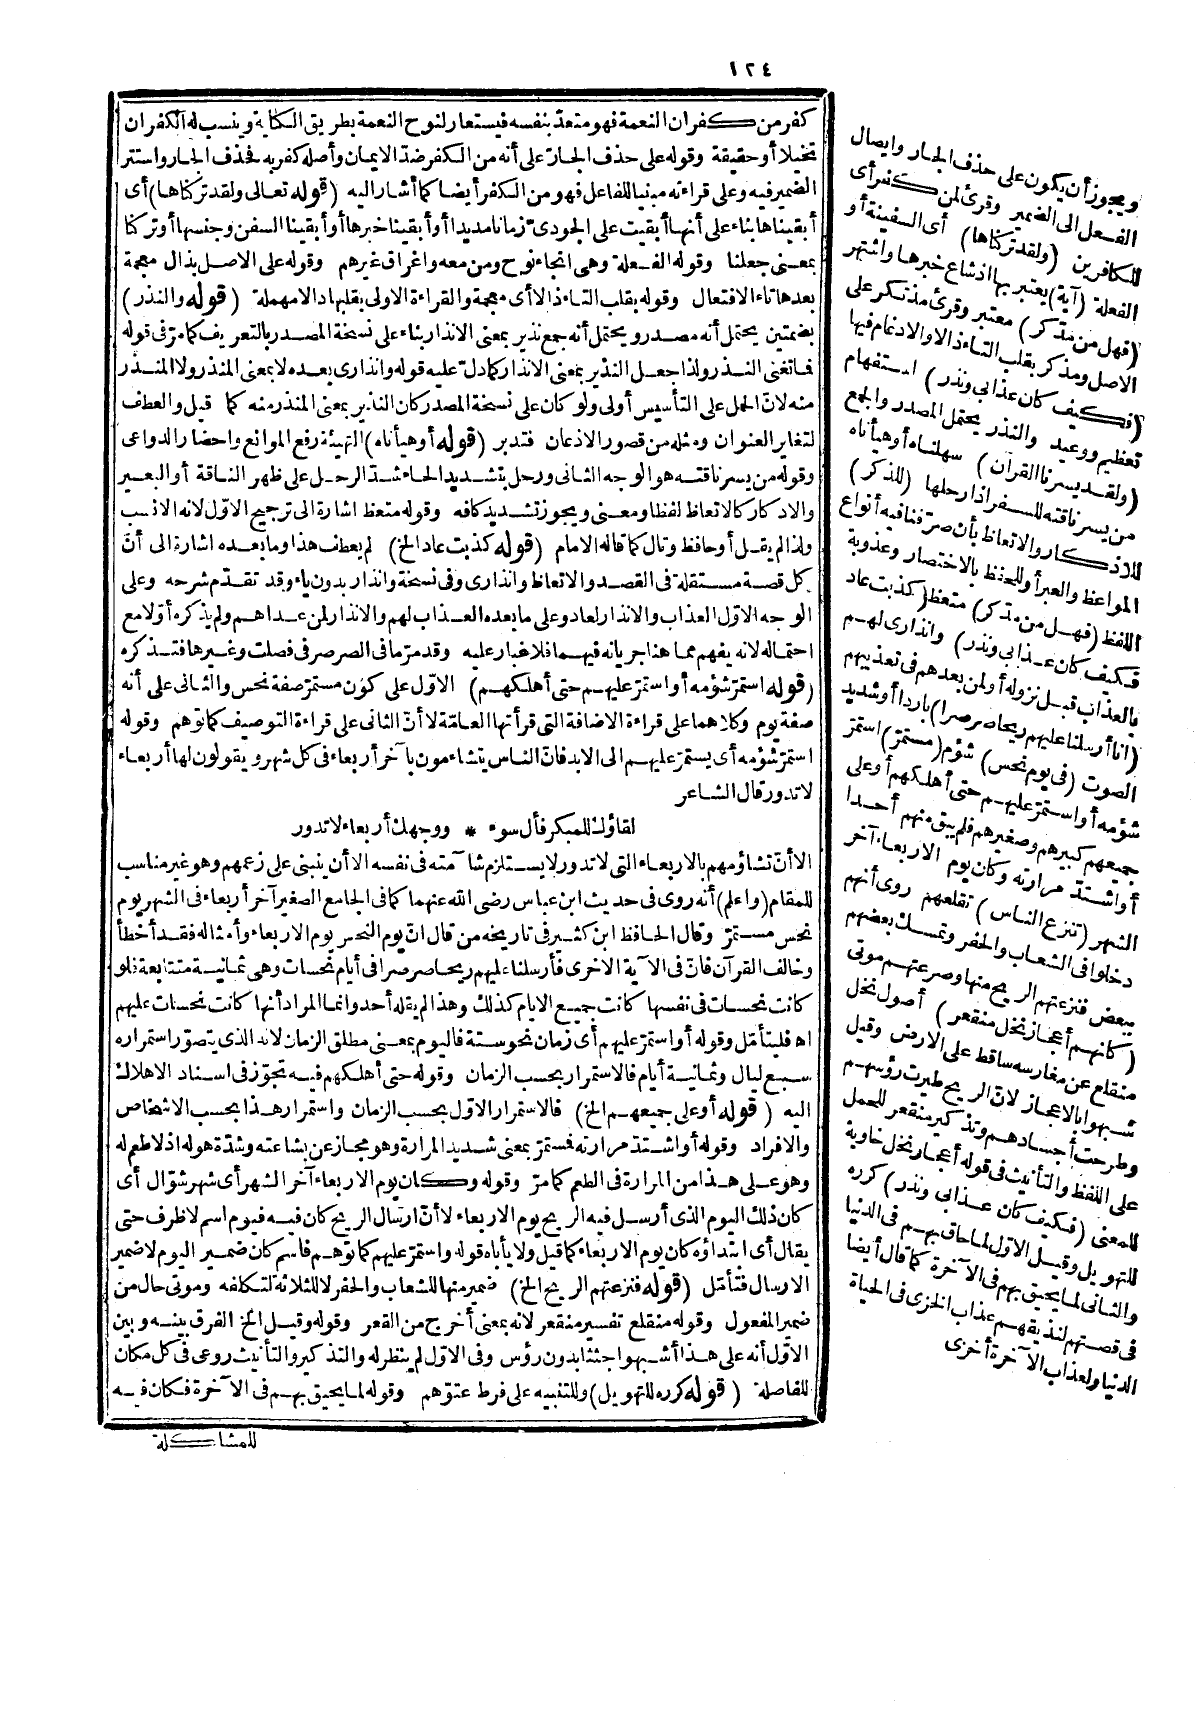 ١٢٤
كفر من كفران النعمة فهو متعد بنفسه فيستعار لنوح النعمة بطريق الكناية وينسب له الكفران
تخييلا أو حقيقة وقوله على حذف الجار على أنه من الكفر ضد الايمان وأصله كفر به فحذف الجار واستتر
الضمير فيه وعلى قراءته مبنيا للفاعل فهو من الكفر أيضا كما أشار اليه (قوله تعالى ولقد تركناها) أى
أبقيناها بناء على أنها أبقيت على الجودى زمانا مديدا أو أبقينا خبرها أو أبقينا السفن وجنسها أو تركنا
بمعنى جعلنا وقوله الفعلة وهى انجاء نوح ومن معه واغراق غيرهم وقوله على الاصل بذال معجمة
بعدها تاء الافتعال وقوله بقلب التاء ذالا أى معجمة والقراءة الاولى بقلبها دالا مهملة (قوله والنذر)
بضمتين يحتمل أنه مصدر ويحتمل أنه جمع نذير بمعنى الانذار بناء على نسخة المصدر بالتعريف كما مر فى قوله
فما تغنى النذر ولذا جعل النذير بمعنى الانذار كما دل عليه قوله وانذارى بعده لا بمعنى المنذر ولا المنذر
منه لان الحمل على التأسيس أولى ولو كان على نسخة المصدر كان النذير بمعنى المنذر منه كما قيل والعطف
لتغاير العنوان ومثله من قصور الاذعان فتدبر (قوله أوهيأناه) التهيئة رفع الموانع واحضار الدواعى
وقوله من يسر ناقته هو الوجه الثانى ورحل بتشديد الحاء شد الرحل على ظهر الناقة أو البعير
والادكار كالاتعاظ لفظا ومعنى ويجوز تشديد كافه وقوله متعظ اشارة الى ترجيح الاول لانه الانسب
ولذا لم يقل أو حافظ وتال كما قاله الامام (قوله كذبت عاد الخ) لم يعطف هذا وما بعده اشارة الى أن
كل قصة مستقلة فى القصد والاتعاظ وانذارى وفى نسخة وانذار بدون ياء وقد تقدم شرحه وعلى
الوجه الاول العذاب والانذار لعاد وعلى ما بعده العذاب لهم والانذار لمن عداهم ولم يذكره أولا مع
احتماله لانه يفهم مما هنا جريانه فيهما فلا غبار عليه وقد مر ما فى الصرصر فى فصلت وغيرها فتذكره
(قوله استمر شؤمه أو استمر عليهم حتى أهلكهم) الاول على كون مستمر صفة نحس والثانى على أنه
صفة يوم وكلاهما على قراءة الاضافة التى قرأتها العامة لا أن الثانى على قراءة التوصيف كما توهم وقوله
استمر شؤمه أى يستمر عليهم الى الابد فان الناس يتشاءمون بآخر أربعاء فى كل شهر ويقولون لها أربعاء
لا تدور قال الشاعر
لقاؤك للمبكر فأل سوء * ووجهك أربعاء لا تدور
الا أن تشاؤمهم بالاربعاء التى لا تدور لا يستلزم شآمته فى نفسه الا أن ينبنى على زعمهم وهو غير مناسب
للمقام (واعلم) أنه روى فى حديث ابن عباس رضى الله عنهما كما فى الجامع الصغير آخر أربعاء فى الشهر يوم
نحس مستمر وقال الحافظ ابن كثير فى تاريخه من قال ان يوم النحس يوم الاربعاء وأمثاله فقد أخطأ
وخالف القرآن فان فى الآية الاخرى فأرسلنا عليهم ريحا صرصرا فى أيام نحسات وهى ثمانية متتابعة فلو
كانت نحسات فى نفسها كانت جميع الايام كذلك وهذا لم يقله أحد وانما المراد أنها كانت نحسات عليهم
اه فليتأمل وقوله أو استمر عليهم أى زمان نحوسته فاليوم بمعنى مطلق الزمان لانه الذى يتصور استمراره
سبع ليال وثمانية أيام فالاستمرار بحسب الزمان وقوله حتى أهلكهم فيه تجوز فى اسناد الاهلاك
اليه (قوله أو على جميعهم الخ) فالاستمرار الاول بحسب الزمان واستمرار هذا بحسب الاشخاص
والافراد وقوله أو اشتد مرارته فمستمر بمعنى شديد المرارة وهو مجاز عن بشاعته وشدة هوله اذ لا طعم له
وهو على هذا من المرارة فى الطعم كما مر وقوله وكان يوم الاربعاء آخر الشهر أى شهر شوال أى
كان ذلك اليوم الذى أرسل فيه الريح يوم الاربعاء لا أن ارسال الريح كان فيه فيوم اسم لا ظرف حتى
يقال أى ابتداؤه كان يوم الاربعاء كما قيل ولا يأباه قوله واستمر عليهم كما توهم فاسم كان ضمير اليوم لا ضمير
الارسال فتأمل (قوله فنزعتهم الريح الخ) ضمير منها للشعاب والحفر لا للثلاثة لتكلفه وموتى حال من
ضمير المفعول وقوله منقلع تفسير منقعر لانه بمعنى أخرج من القعر وقوله وقيل الخ الفرق بينه وبين
الاول أنه على هذا أشبهوا جثثا بدون رؤس وفى الاول لم ينظر له والتذكير والتأنيث روعى فى كل مكان
للفاصلة (قوله كرره للتهويل) وللتنبيه على فرط عتوهم وقوله لما يحيق بهم فى الآخرة فكان فيه
للمشاكلة
ويجوز أن يكون على حذف الجار وايصال
الفعل الى الضمير وقرئ لمن كفر أى
للكافرين (ولقد تركناها) أى السفينة أو
الفعلة (آية) يعتبر بها اذ شاع خبرها واشتهر
(فهل من مدكر) معتبر وقرئ مذتكر على
الاصل ومذكر بقلب التاء ذالا والادغام فيها
(فكيف كان عذابى ونذر) استفهام
تعظيم ووعيد والنذر يحتمل المصدر والجمع
(ولقد يسرنا القرآن) سهلناه أو هيأناه
من يسر ناقته للسفر اذا رحلها (للذكر)
للادكار والاتعاظ بأن صرفنا فيه أنواع
المواعظ والعبر أو للحفظ بالاختصار وعذوبة
اللفظ (فهل من مدكر) متعظ (كذبت عاد
فكيف كان عذابى ونذر) وانذارى لهم
بالعذاب قبل نزوله أو لمن بعدهم فى تعذيبهم
(انا أرسلنا عليهم ريحا صرصرا) باردا أو شديد
الصوت (فى يوم نحس) شؤم (مستمر) استمر
شؤمه أو استمر عليهم حتى أهلكهم أو على
جميعهم كبيرهم وصغيرهم فلم يبق منهم أحدا
أو اشتد مرارته وكان يوم الاربعاء آخر
الشهر (تنزع الناس) تقلعهم روى أنهم
دخلوا فى الشعاب والحفر وتمسك بعضهم
ببعض فنزعتهم الريح منها وصرعتهم موتى
(كأنهم أعجاز نخل منقعر) أصول نخل
منقلع عن مغارسه ساقط على الارض وقيل
شبهوا بالاعجاز لان الريح طيرت رؤسهم
وطرحت أجسادهم وتذكير منقعر للحمل
على اللفظ والتأنيث فى قوله أعجاز نخل خاوية
للمعنى (فكيف كان عذابى ونذر) كرره
للتهويل وقيل الاول لما حاق بهم فى الدنيا
والثانى لما يحيق بهم فى الآخرة كما قال أيضا
فى قصتهم لنذيقهم عذاب الخزى فى الحياة
الدنيا ولعذاب الآخرة أخزى